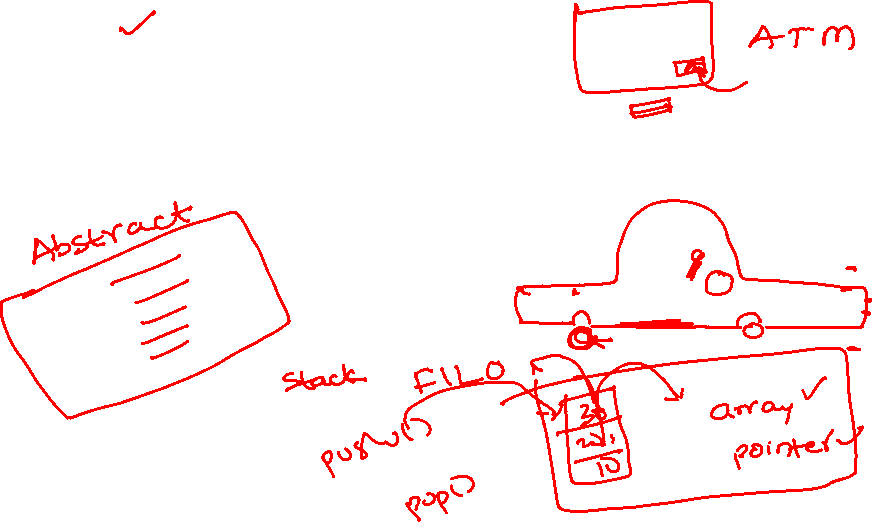 ATM
Abstract
stack FILO
push()
pop()
30
20
10
array
pointer